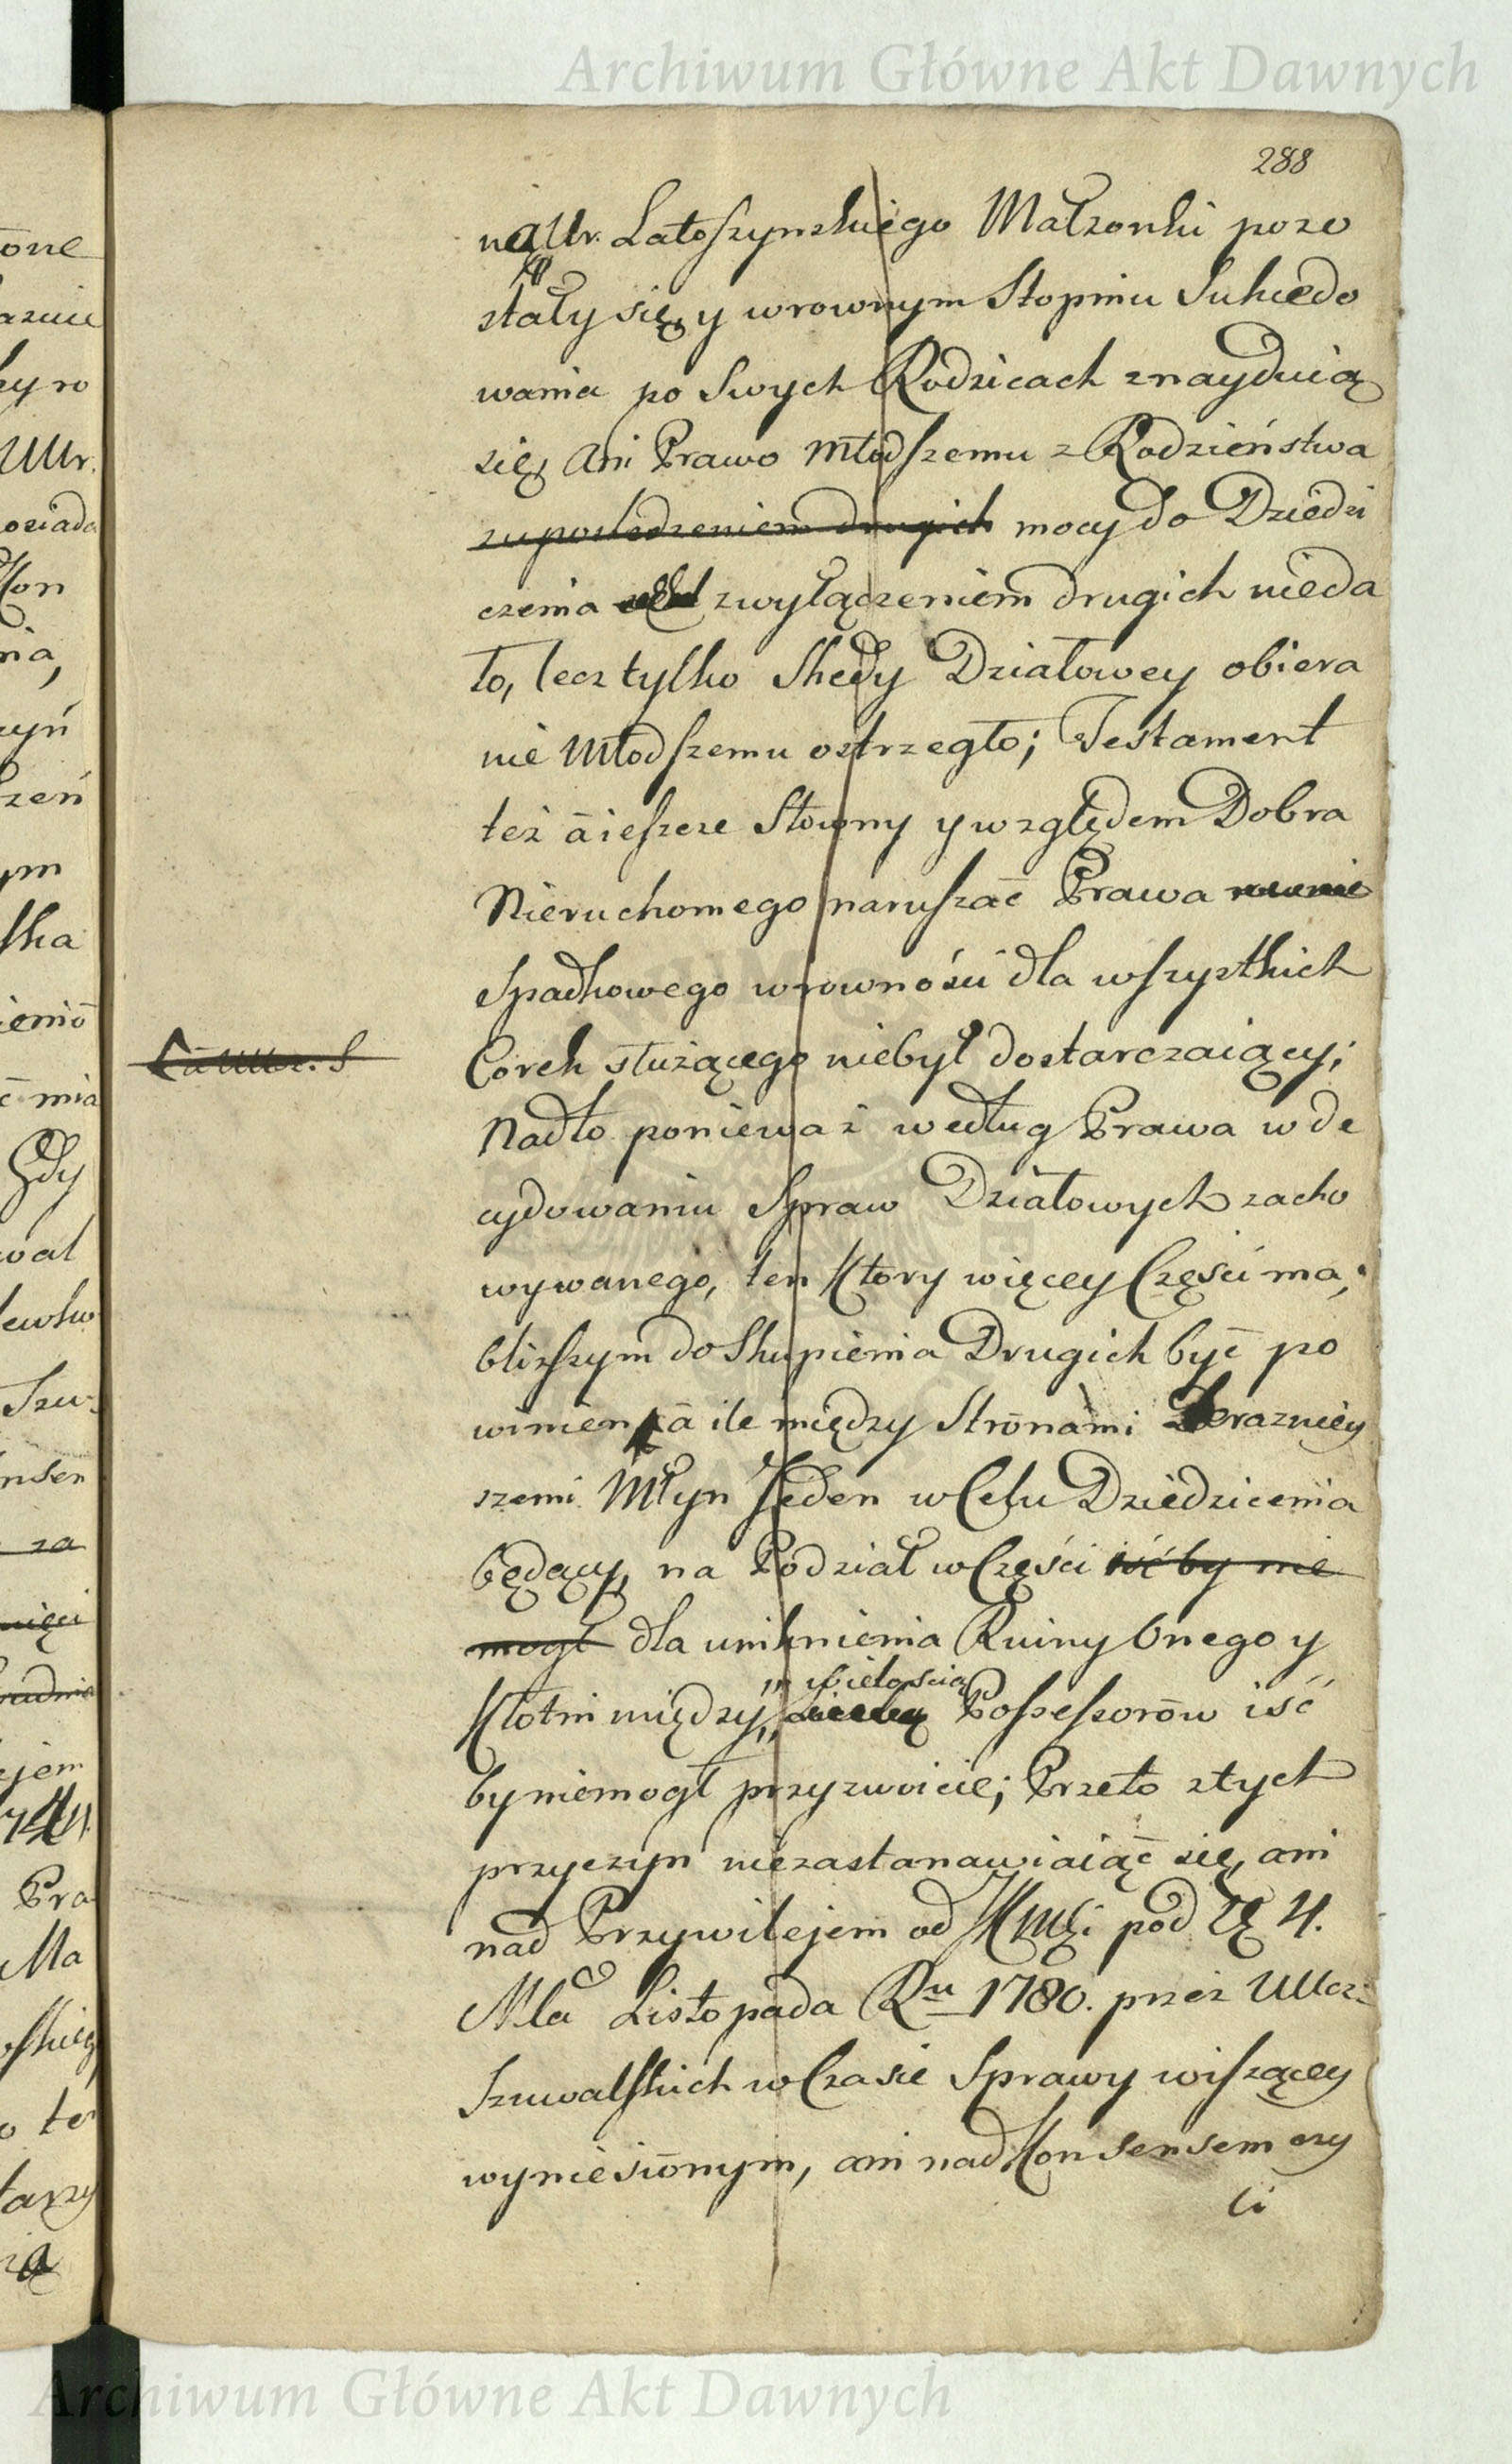 Archiwum Główne Akt Dawnych
288
ną Ur. Latoszynskiego Małzonki pozo
stały się, y wrownym Stopniu Sukcedo
wania po Swych Rodzicach znayduią
się, Ani Prawo młodszemu z Rodzieństwa
zuposledzeniem drugich mocy do Dziedzi
czenia zwyłączeniem drugich nieda
ło, lecz tylko Shedy Działowey obiera
nie Młodszemu ostrzegło; Testament
też ā ieszcze Słowny y względem Dobra
Nieruchomego naruszać Prawa
Spadkowego wrowności dla wszystkich
Corek służącego niebył dostarczaiący;
Nadto ponieważ według Prawa wde
cydowaniu Spraw Działowych zacho
wywanego, ten Ktory więcey Części ma,
bliższym do Skupienia Drugich być po
winien, ā ile między Stronami Terazniey
szemi Młyn Jeden w Celu Dziedzicenia
będący, na Podział w Części iść by nie
mogł dla uniknienia Ruiny Onego y
Kłotni między wielością Possessorōw iść
by niemogł przyzwoicie; Przeto ztych
przyczyn niezastanawiaiąć się, ani
nad Przywilejem od JKMci pod Dą 4.
Mca Listopada Ru 1780. przez UUcz:
Szuwalskich w Czasie Sprawy wiszącey
wyniesionym, ani nad Konsensem czy
li
Archiwum Główne Akt Dawnych